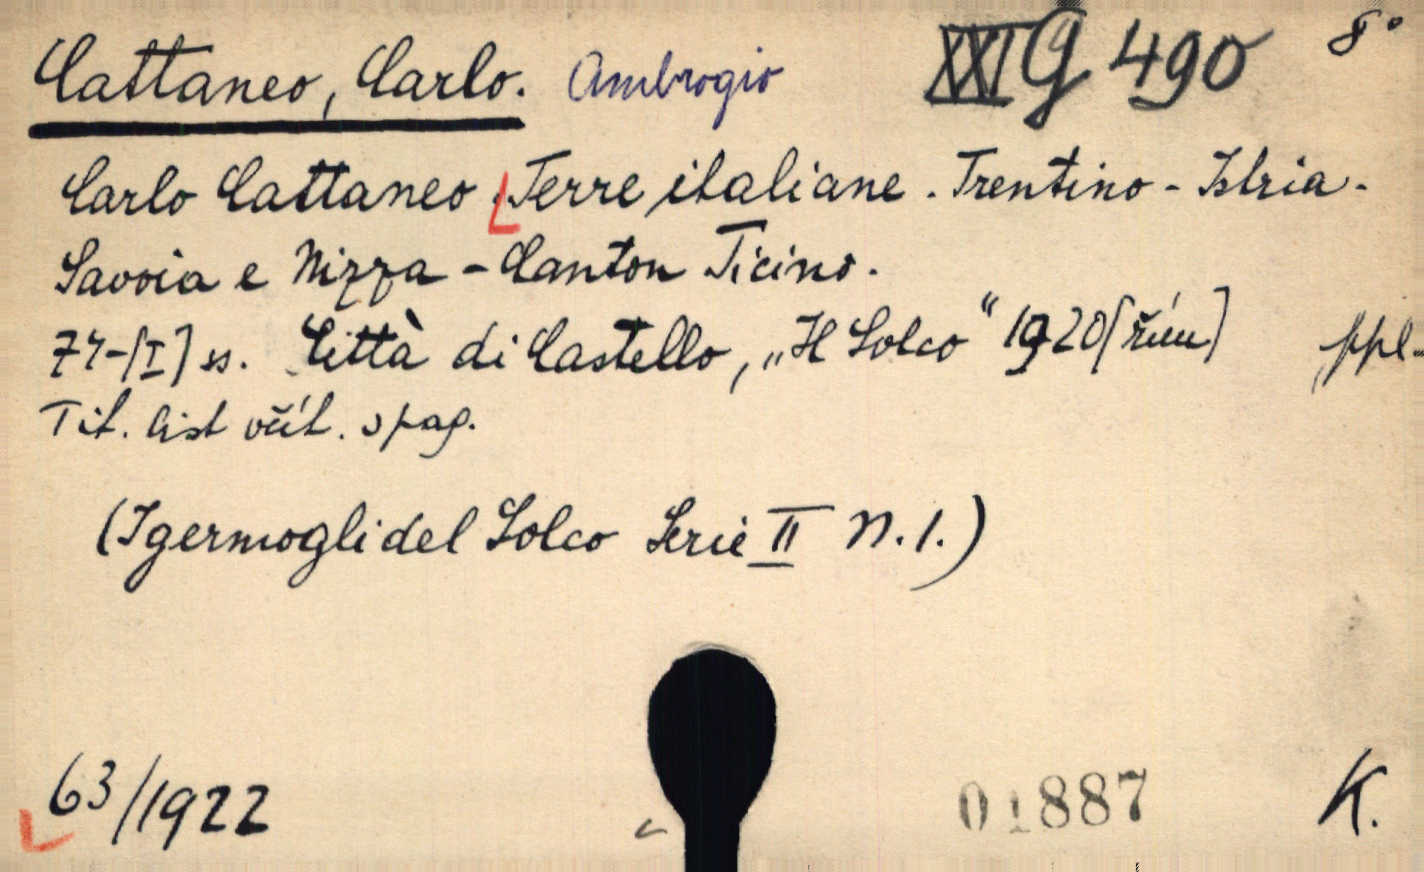 Cattaneo, Carlo. Ambrogio XXI G 490 8°
Carlo Cattaneo. Terre italiane. Trentino - Istria -
Savoia e Nizza - Canton Ticino.
74-[I] ss. Città di Castello, „Il Solco“ 1920 [řím] ppl.
Tit. list včít. v pag.
(I germogli del Solco Serie II N. 1.)
63/1922 01887 K.